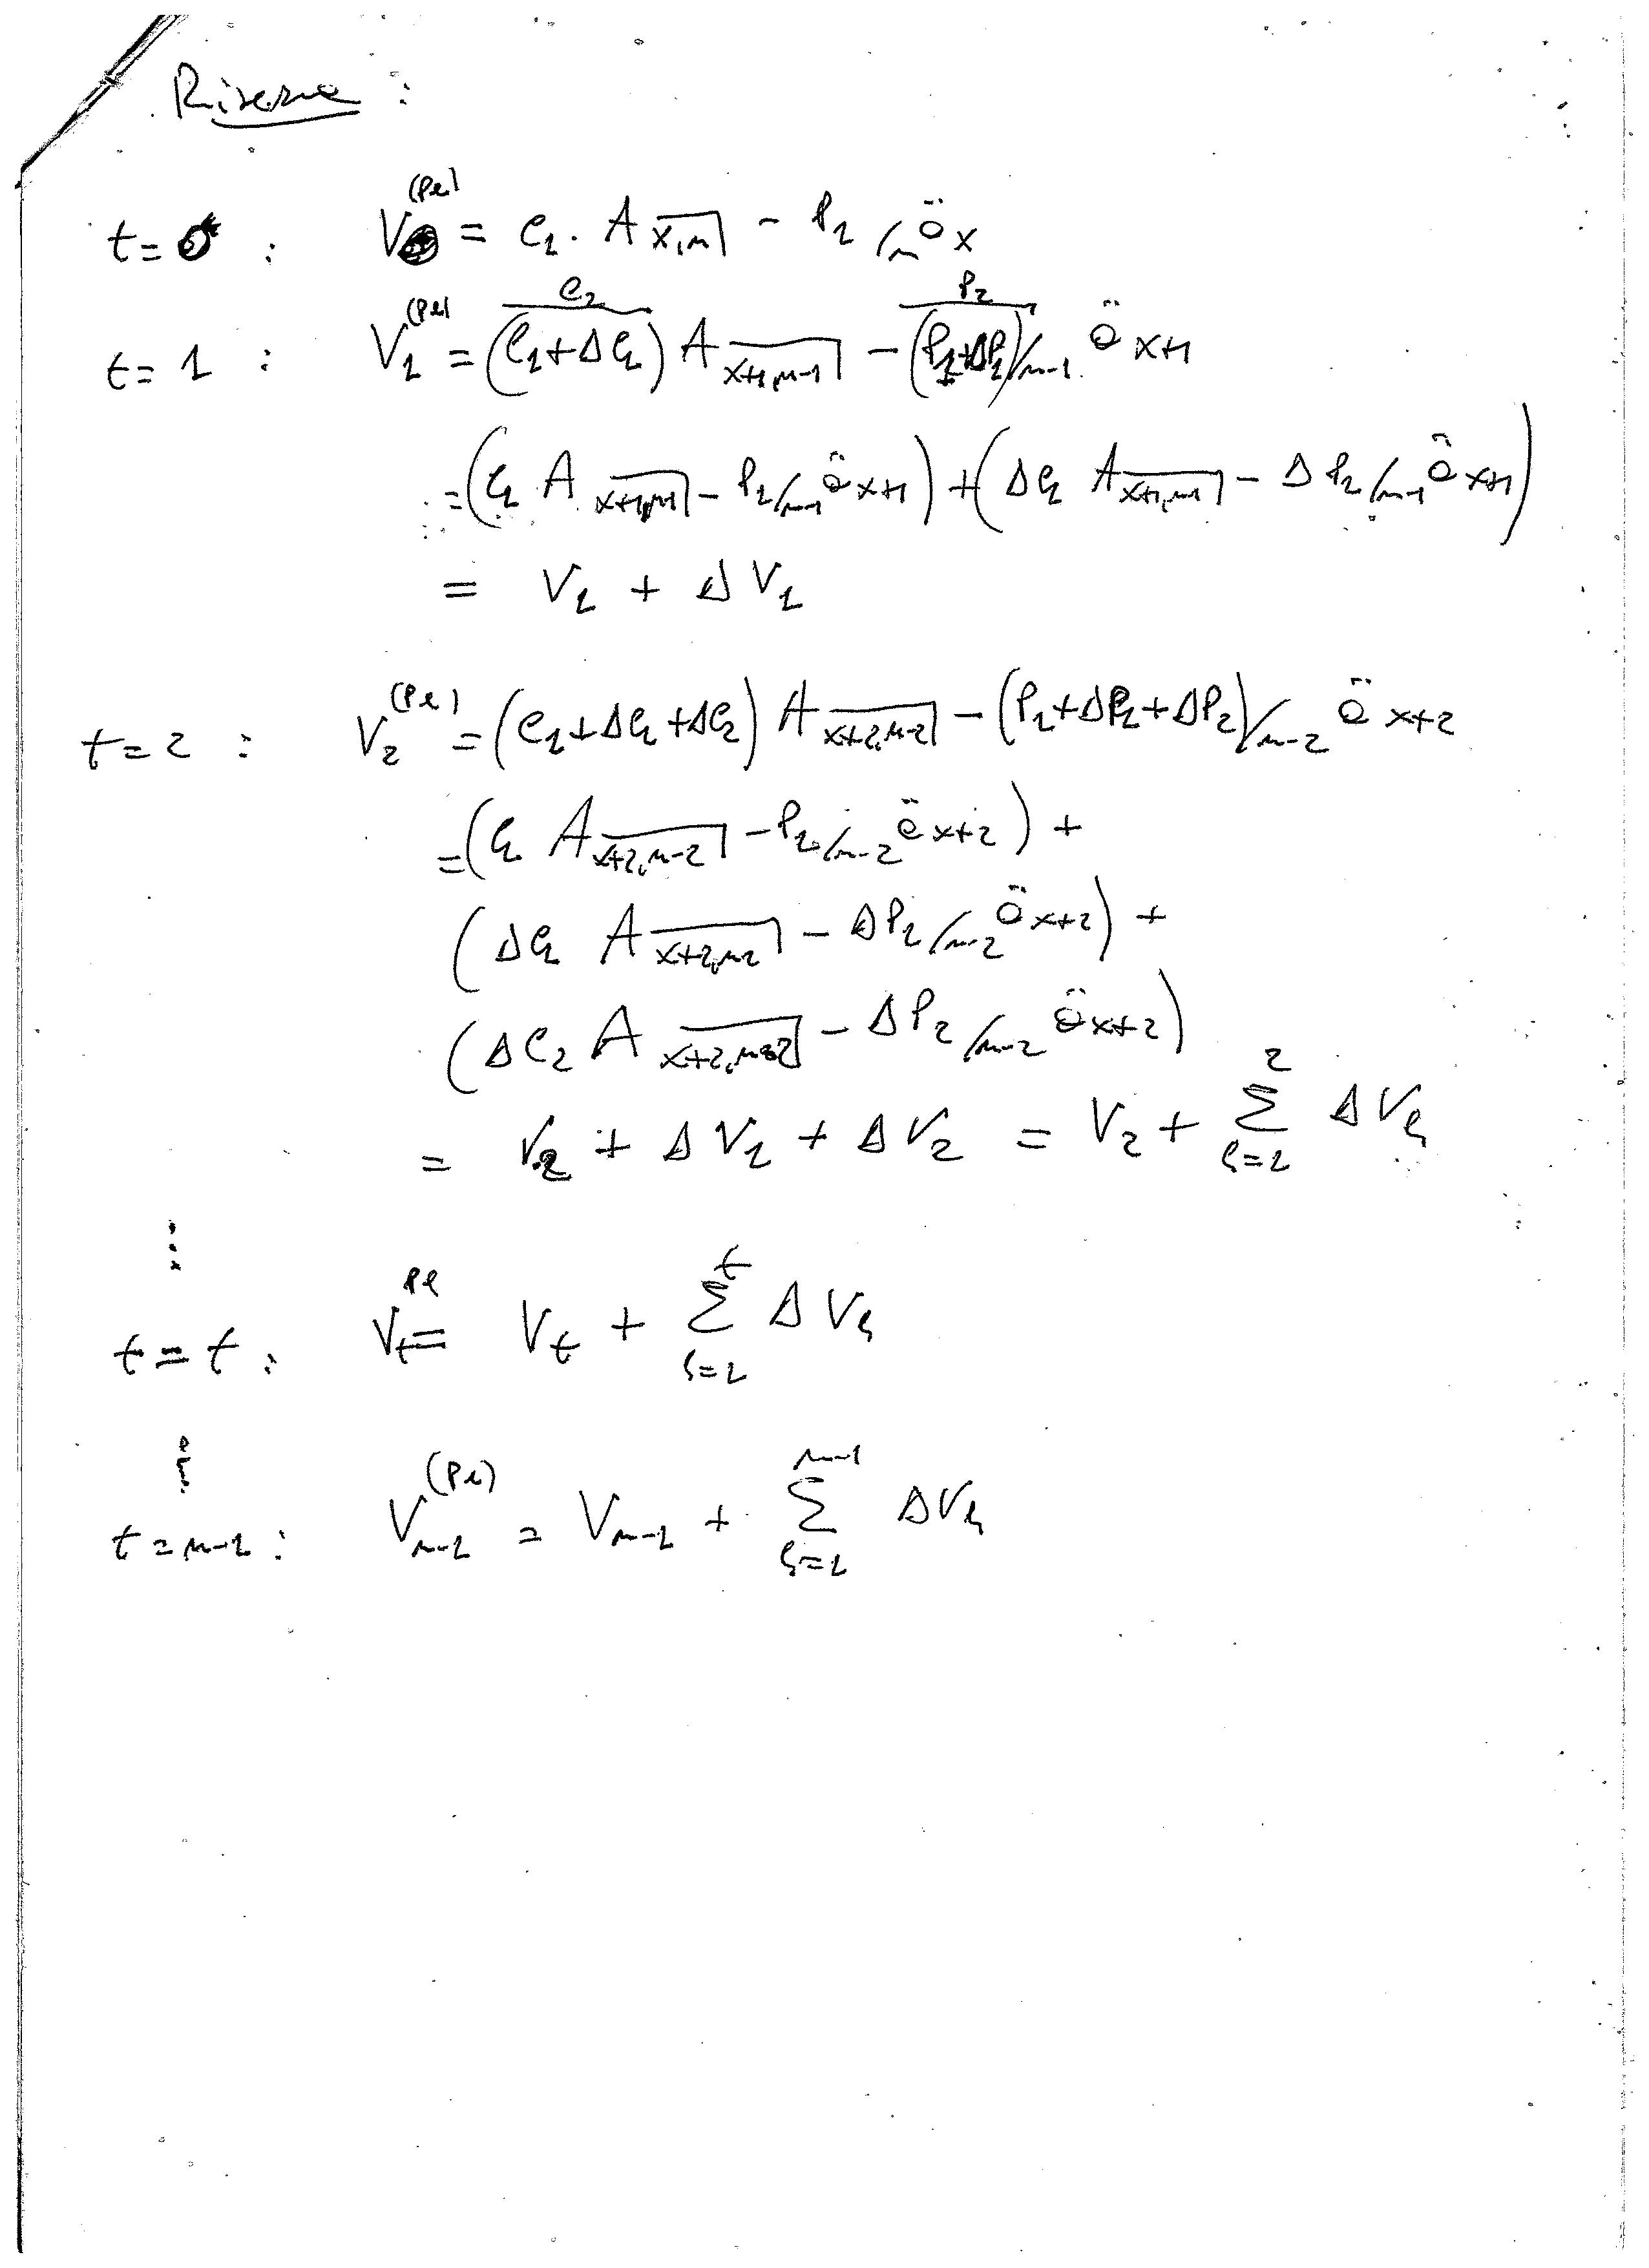 Riserve :
t=0 : V₀⁽ᴾᵉ⁾ = C₁ · A x,n⌉ − P₁ /n ä x
t=1 : V₁⁽ᴾᵉ⁾ = (C₁+ΔC₁) A x+1,n−1⌉ − (P₁+ΔP₁) /n−1 ä x+1
C₂ P₂
= (C₁ A x+1,n−1⌉ − P₁ /n−1 ä x+1) + (ΔC₁ A x+1,n−1⌉ − ΔP₁ /n−1 ä x+1)
= V₁ + ΔV₁
t=2 : V₂⁽ᴾᵉ⁾ = (C₁+ΔC₁+ΔC₂) A x+2,n−2⌉ − (P₁+ΔP₁+ΔP₂) /n−2 ä x+2
= (C₁ A x+2,n−2⌉ − P₁ /n−2 ä x+2) +
(ΔC₁ A x+2,n−2⌉ − ΔP₁ /n−2 ä x+2) +
(ΔC₂ A x+2,n−2⌉ − ΔP₂ /n−2 ä x+2)
= V₂ + ΔV₁ + ΔV₂ = V₂ + Σ_{s=1}^{2} ΔVₛ
⋮
t=t : V_t^{Pe} = V_t + Σ_{s=1}^{t} ΔVₛ
⋮
t=n−1 : V_{n−1}^{(Pe)} = V_{n−1} + Σ_{s=1}^{n−1} ΔVₛ